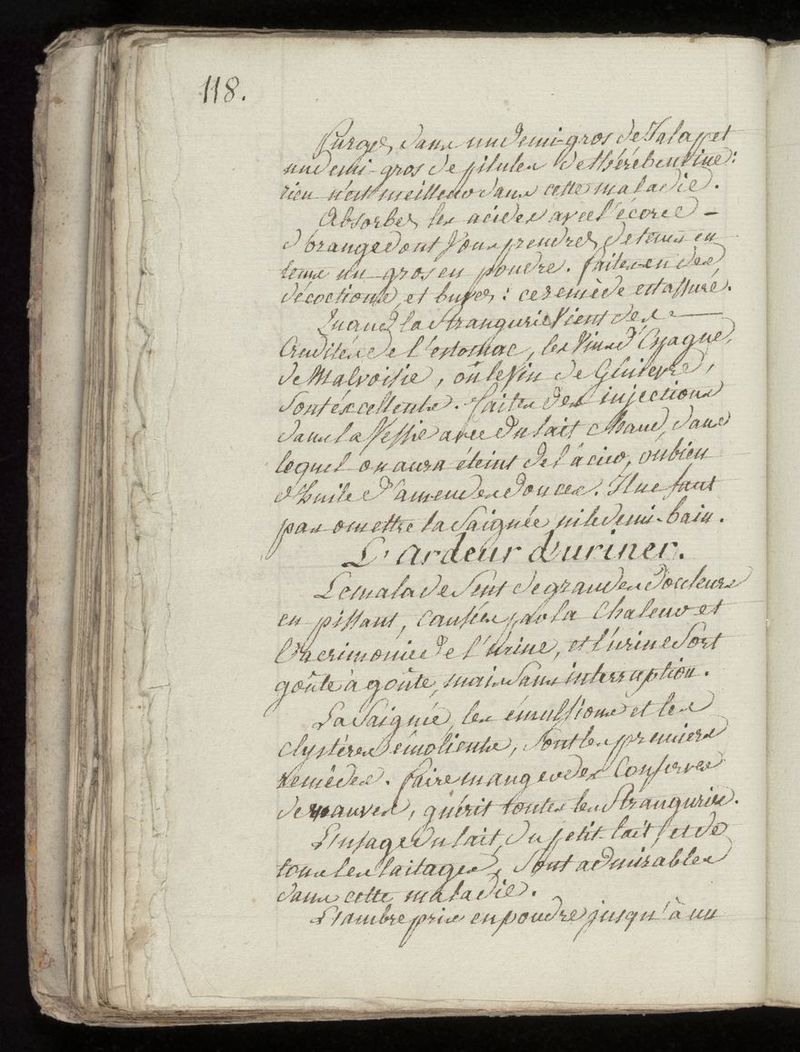 118.
Purgez dans un demi-gros de Jalap et
un demi-gros de pilules de thérébentine:
rien n'est meilleur dans cette maladie.
Absorbez les acides avec l'écorce -
d'orange dont vous prendrez de tems en
tems un gros en poudre. faites-en des
décoctions, et buvez: ce remède est assuré.
Quand la strangurie vient des
crudités de l'estomac, les Vins d'Espagne,
de Malvoisie, où le Vin de Génievre,
sont excellents. faites des injections
dans la Vessie avec du lait chaud, dans
lequel on aura éteint de l'àcier, où bien
d'huile d'amendes douces. Il ne faut
pas omettre la Saignée ni le demi-bain.
L'Ardeur d'uriner.
Le malade sent de grandes douleurs
en pissant, causées par la chaleur et
l'acrimonie de l'urine, et l'urine sort
goûte à goûte, mais sans interruption.
La Saignée, les émulsions et les
clystéres émolients, sont les premiers
remèdes. faire manger des Conserves
de mauves, guérit toutes les Stranguries.
L'usage du lait, du petit lait, et de
tous les laitages, sont admirables
dans cette maladie.
L'ambre pris en poudre jusqu'à un